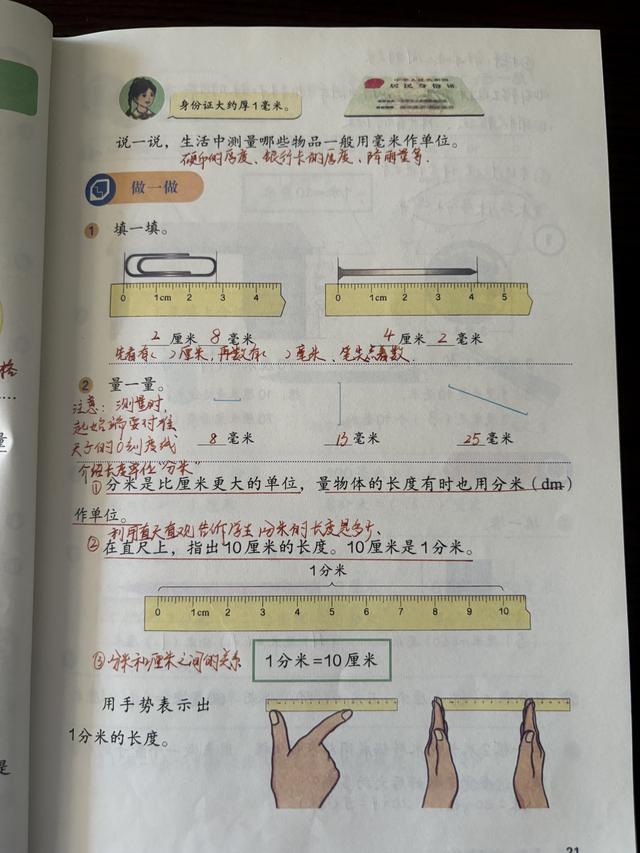 身份证大约厚1毫米。
中华人民共和国
居民身份证
说一说，生活中测量哪些物品一般用毫米作单位。
硬币的厚度、银行卡的厚度、降雨量等.
做一做
1 填一填。
0 1cm 2 3 4
0 1cm 2 3 4 5
2 厘米 8 毫米
4 厘米 2 毫米
先看有( )厘米,再数有( )毫米、
2 量一量。
注意：测量时,
起始端要对准
尺子的0刻度线
8 毫米
13 毫米
25 毫米
介绍长度单位"分米"
①分米是比厘米更大的单位，量物体的长度有时也用分米（dm）
作单位。
利用直尺直观告诉学生1分米的长度是多少、
②在直尺上，指出10厘米的长度。10厘米是1分米。
1分米
0 1cm 2 3 4 5 6 7 8 9 10
③分米和厘米之间的关系
1分米=10厘米
用手势表示出
1分米的长度。
21